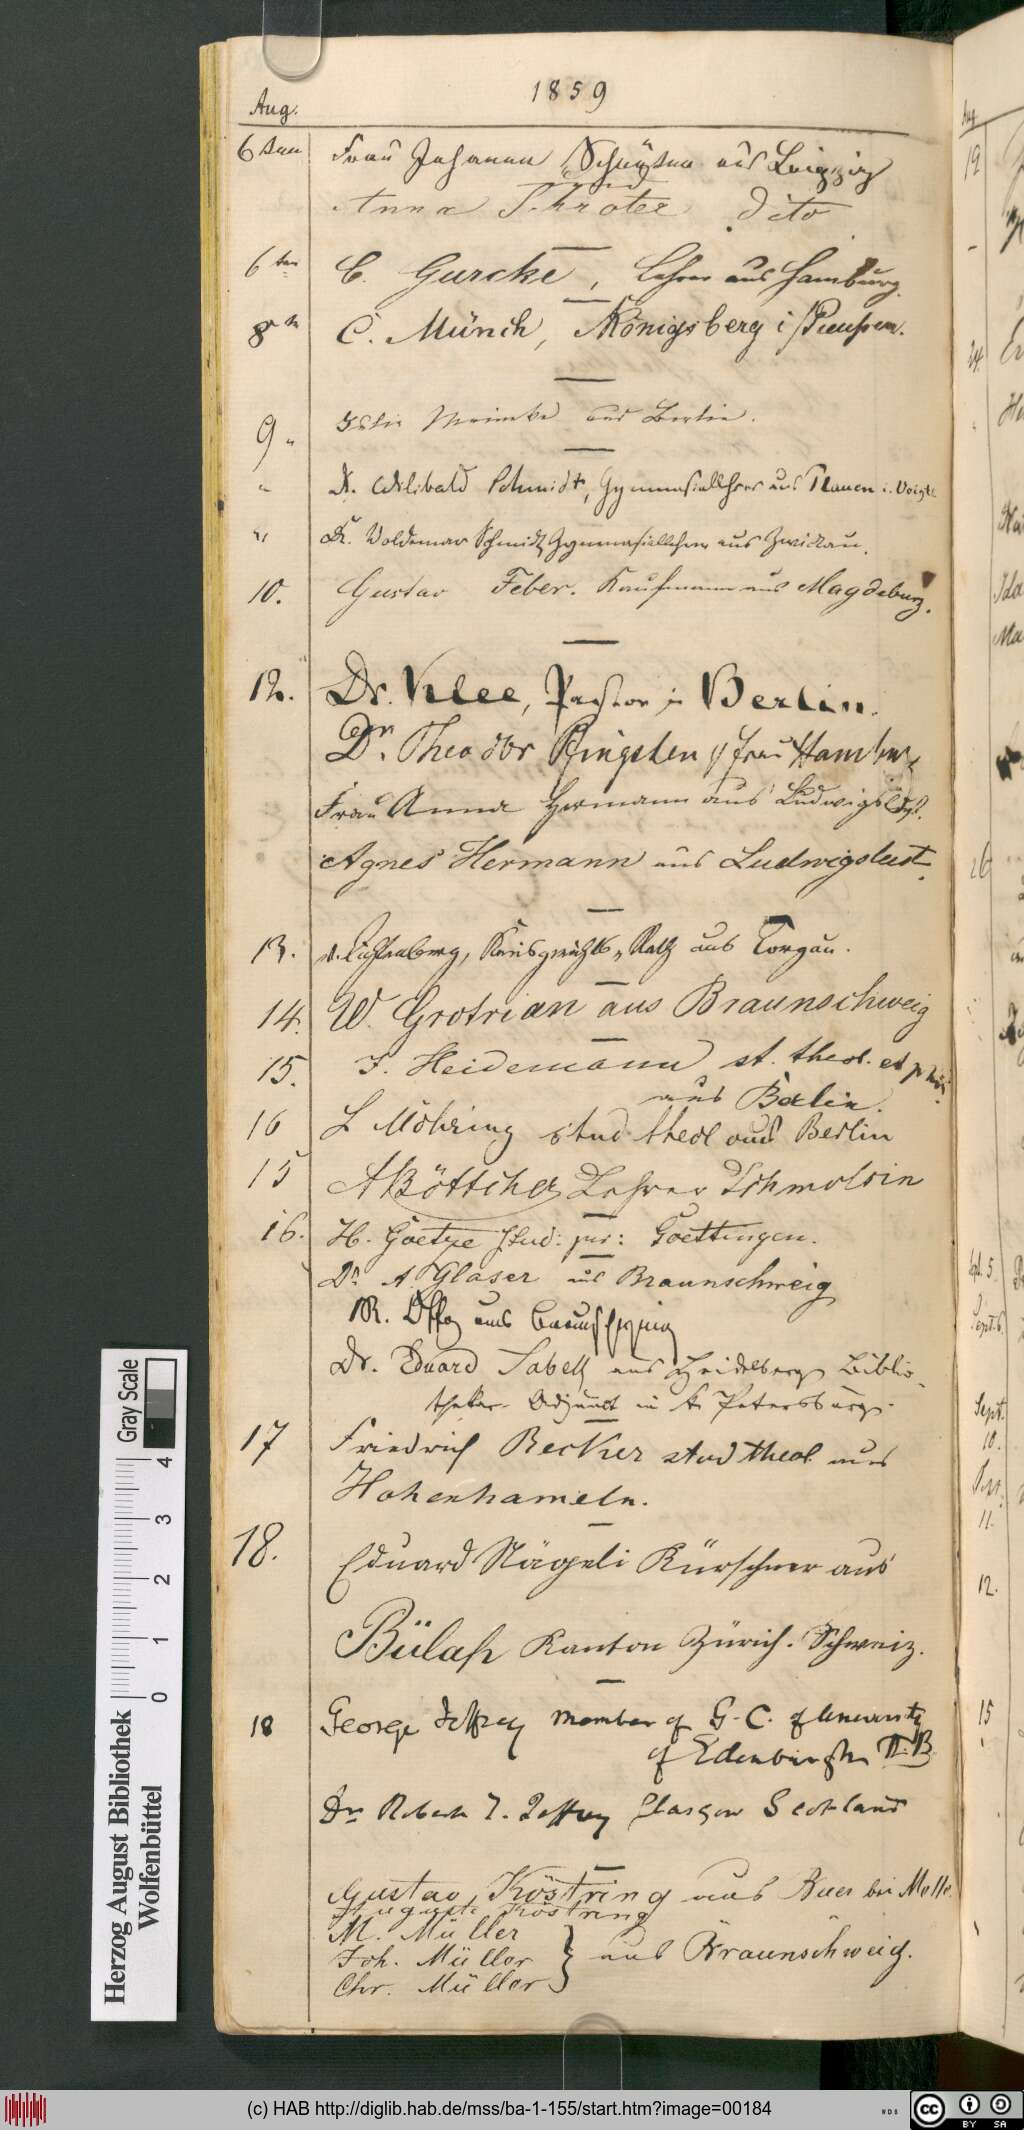 1859
Aug.
6ten Frau Johanna aus Leipzig
Anna Schröter dito
6ten C. Gurcke, Lehrer aus Hamburg.
8t C. Münch, Königsberg i/Preußen.
9 " aus Berlin.
" Dr. Wilibald Schmidt, Gymnasiallehrer aus Plauen i. Voigtl.
" Dr. Woldemar Schmidt, Gymnasiallehrer aus Zwickau.
10. Gustav Feber. Kaufmann aus Magdeburg.
12. Dr. Klee, Pastor in Berlin.
Dr. Theodor Pfingsten u Frau Hamburg
Frau Anna Hermann aus Ludwigslust.
Agnes Hermann aus Ludwigslust.
13. v. Lichtenberg, Kreisgerichts-Rath aus Torgau.
14. W. Grotrian aus Braunschweig
15. F. Heidemann, st. theol. et phil.
aus Berlin.
16 L Möhring stud theol aus Berlin
15 A Böttcher Lehrer Schmolsin
16. H. Goetze stud: jur: Goettingen.
Dr. A. Glaser aus Braunschweig
aus Braunschweig
Dr. Eduard aus Heidelberg Biblio-
thekar-Adjunct in St. Petersburg.
17 Friedrich Becker stud theol aus
Hohenhameln.
18. Eduard Nägeli Kürschner aus
Bülach Kanton Zürich. Schweiz.
18 George Jeffrey member of G. C. of University
of Edenburgh
Dr Robert J. Jeffrey Glasgow Scotland
Gustav Köstring aus Buer bei Melle
Auguste Köstring
M. Müller
Joh. Müller } aus Braunschweig.
Chr. Müller
Gray Scale
0 1 2 3 4
Herzog August Bibliothek
Wolfenbüttel
Aug
19
24.
26
Sept. 5
Sept. 6
Sept.
10.
Sept.
11.
12.
15
(c) HAB http://diglib.hab.de/mss/ba-1-155/start.htm?image=00184
WDB
cc BY SA